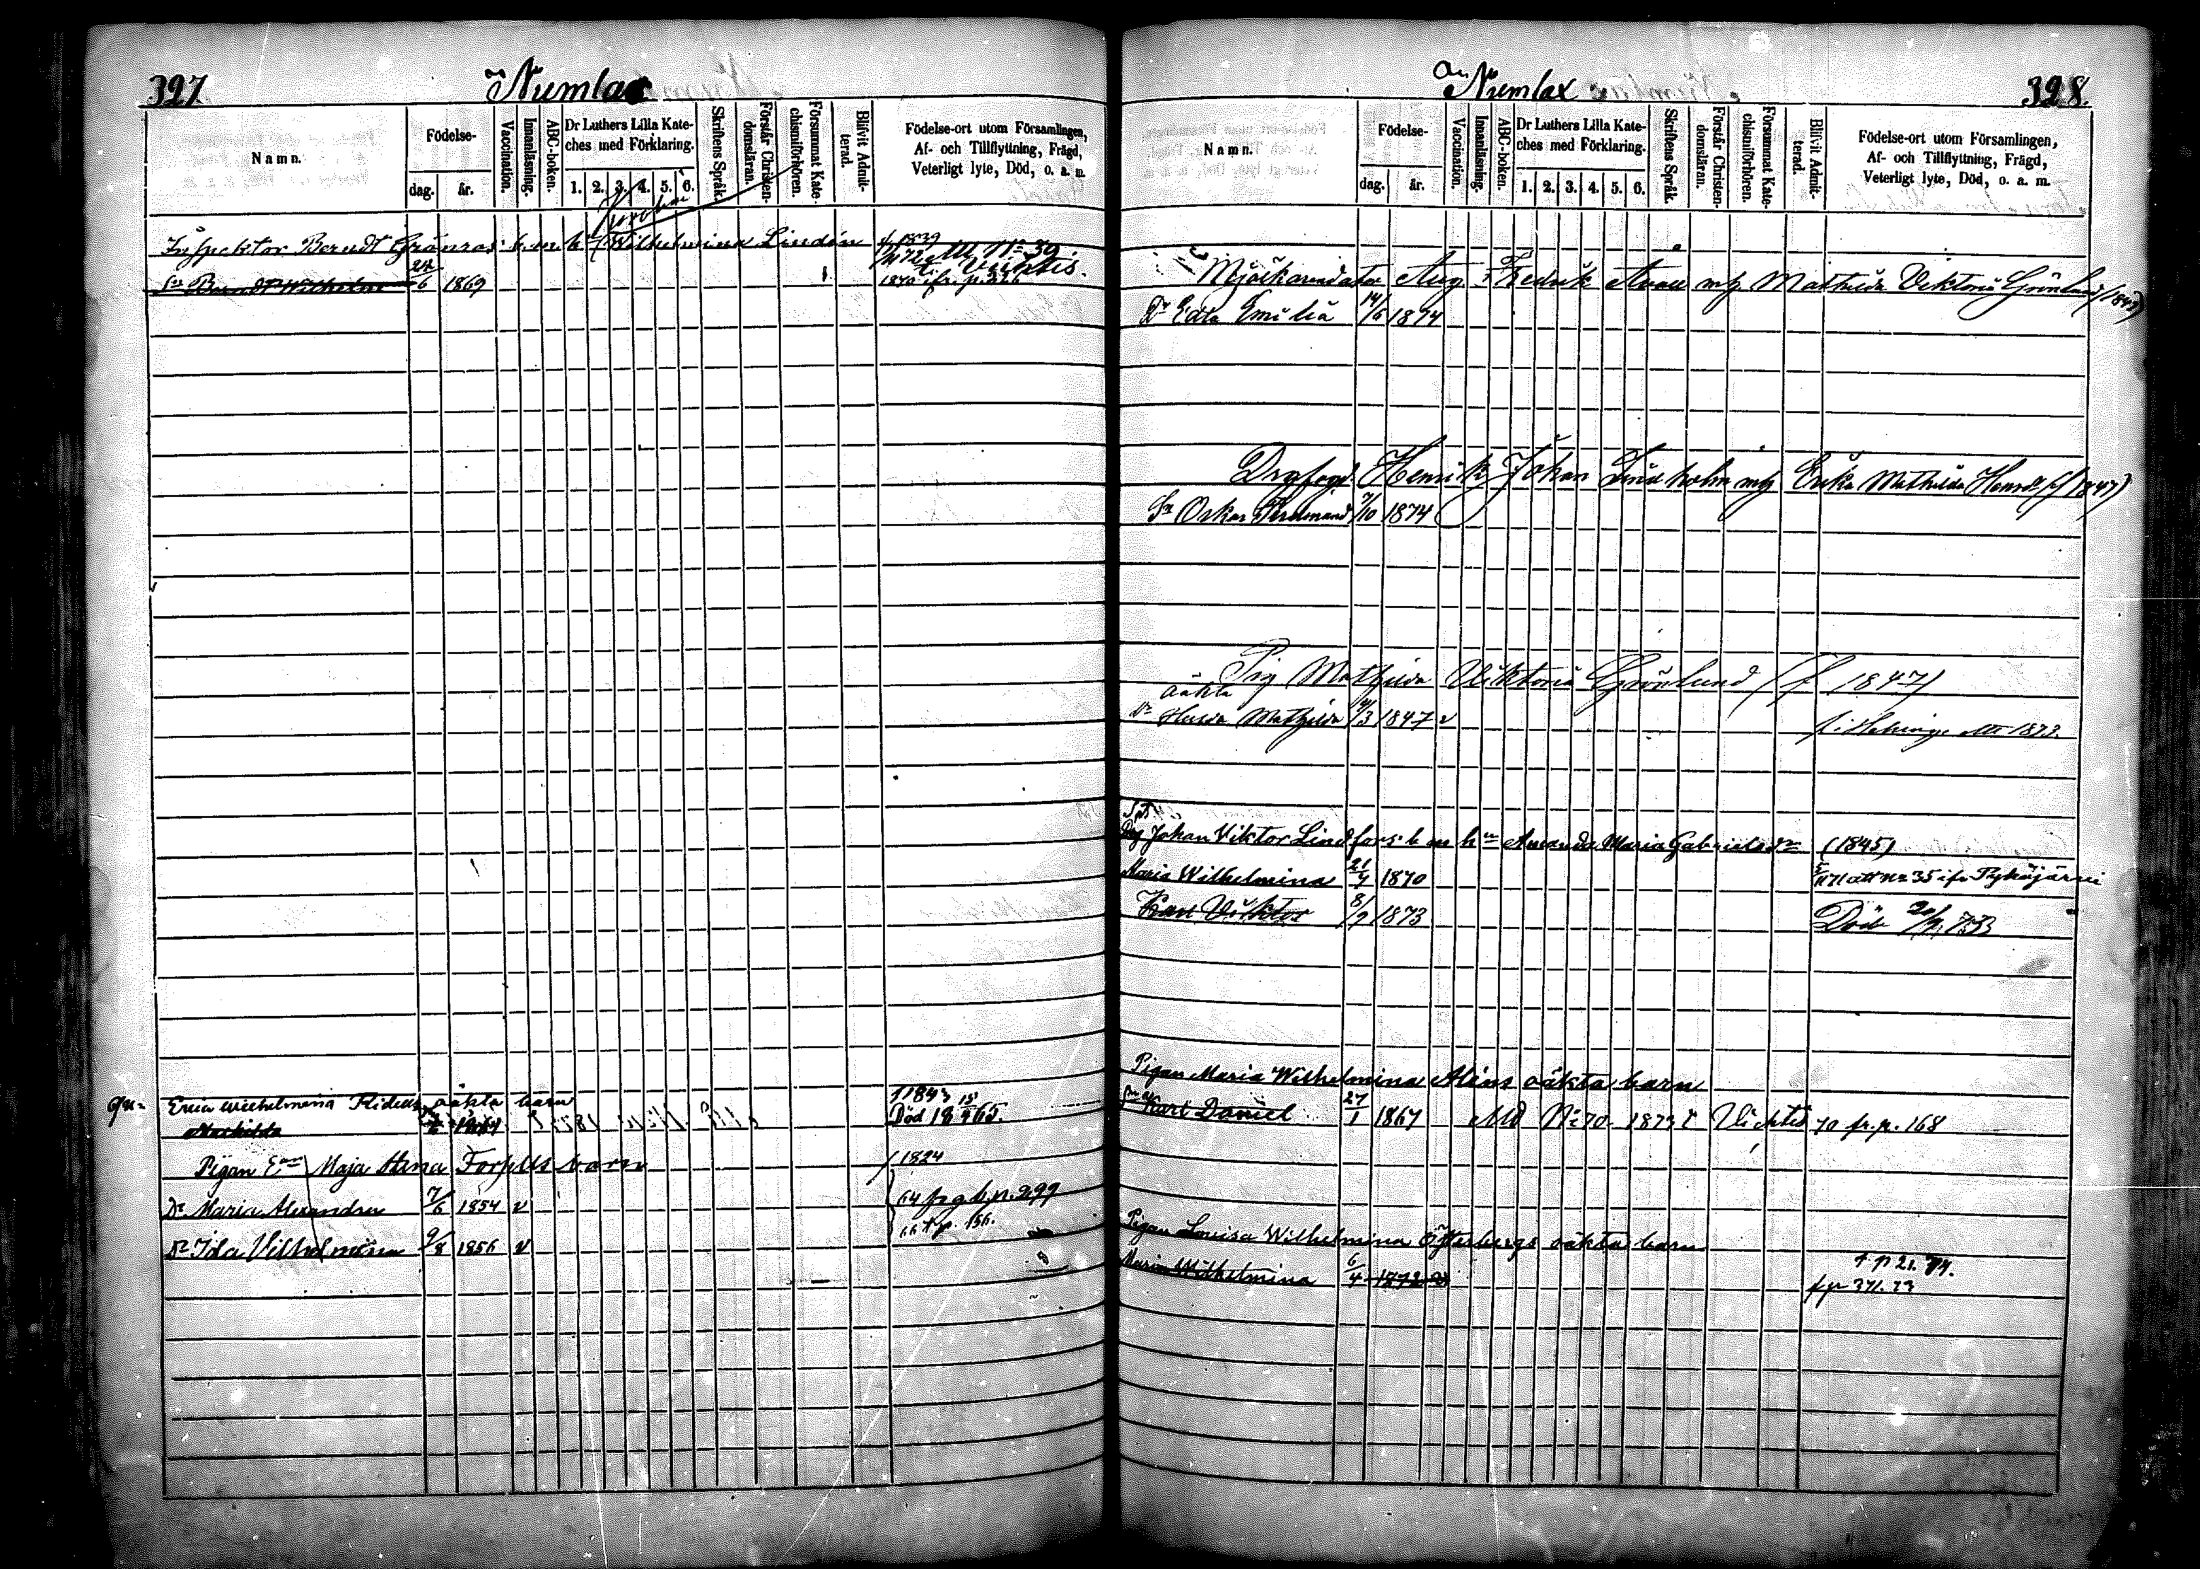 327.
Numlax
Namn.
Födelse-
dag. år.
Vaccination.
Innanläsning.
ABC-boken.
Dr Luthers Lilla Kate-
ches med Förklaring.
1. 2. 3. 4. 5. 6.
Skriftens Språk.
Förstår Christen-
domsläran.
Försummat Kate-
chismiförhören.
Blifvit Admit-
terad.
Födelse-ort utom Församlingen,
Af- och Tillflyttning, Frägd,
Veterligt lyte, Död, o. a. m.
Inspektor Berndt Grönroos b. m. h. Wilhelmina Lindén f. 1839
Sn Berndt Wilhelm 24/6 1869
72 att No 39
Vichtis.
1870 ifr. p. 226
Erica Wilhelmina oäkta barn 1843
Mathilda Död 18 65.
Pigan Maja Stina barn 1824
Dr Maria Alexandra 7/6 1854 v 64 p. 299
Dr Ida Vilhelmina 9/8 1856 v 66 t. p. 156.
Numlax
328.
Namn.
Födelse-
dag. år.
Vaccination.
Innanläsning.
ABC-boken.
Dr Luthers Lilla Kate-
ches med Förklaring.
1. 2. 3. 4. 5. 6.
Skriftens Språk.
Förstår Christen-
domsläran.
Försummat Kate-
chismiförhören.
Blifvit Admit-
terad.
Födelse-ort utom Församlingen,
Af- och Tillflyttning, Frägd,
Veterligt lyte, Död, o. a. m.
Aug Fredrik m h Mathilda Viktoria Grönlund (1847)
Dr Edla Emilia 14/6 1874
Henrik Johan Lindholm m h Erika Mathilda (f 1847)
Sn Oskar Ferdinand 9/10 1874
Pig Mathilda Viktoria Grönlund (f 1847)
oäkta
Dr Hulda Mathilda 1847 v f. i Helsinge 1873.
Johan Viktor Lindfors b m hu Amanda Maria Gabrielsdr (1845)
Maria Wilhelmina 21/4 1870 71 att No 35 ifr
Karl Viktor 8/9 1873 Död 20/9 73
Pigan Maria Wilhelmina Aléns oäkta barn
Karl Daniel 27/1 1867 No 70 1873 t Vichtis 70 fr. p. 168
Pigan Lovisa Wilhelmina Österbergs oäkta barn
Maria Wilhelmina 6/4 1872 t p 21. 74.
f p 371. 73